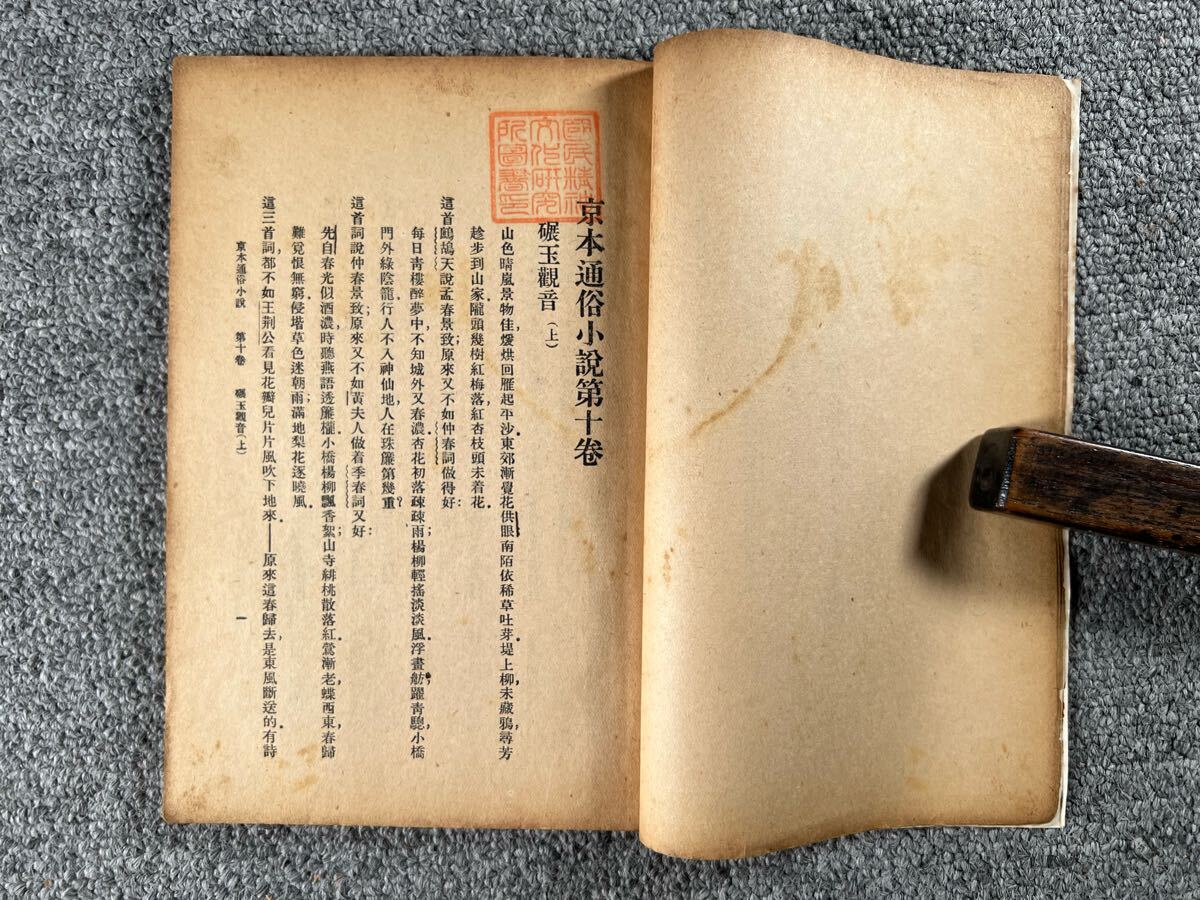 國民精神
文化研究
所圖書印
京本通俗小說第十卷
碾玉觀音(上)
山色晴嵐景物佳,煖烘回雁起平沙.東郊漸覺花供眼,南陌依稀草吐芽.堤上柳,未藏鴉,尋芳
趁步到山家.隴頭幾樹紅梅落,紅杏枝頭未着花.
這首鷓鴣天說孟春景致;原來又不如仲春詞做得好:
每日靑樓醉夢中,不知城外又春濃.杏花初落疎疎雨;楊柳輕搖淡淡風.浮畫舫,躍靑驄,小橋
門外綠陰籠.行人不入神仙地,人在珠簾第幾重?
這首詞說仲春景致;原來又不如黃夫人做着季春詞又好:
先自春光似酒濃,時聽燕語透簾櫳.小橋楊柳飄香絮;山寺緋桃散落紅.鶯漸老,蝶西東,春歸
難覓恨無窮.侵堦草色迷朝雨;滿地梨花逐曉風.
這三首詞,都不如王荆公看見花瓣兒片片風吹下地來.——原來這春歸去,是東風斷送的.有詩
京本通俗小說 第十卷 碾玉觀音(上) 一